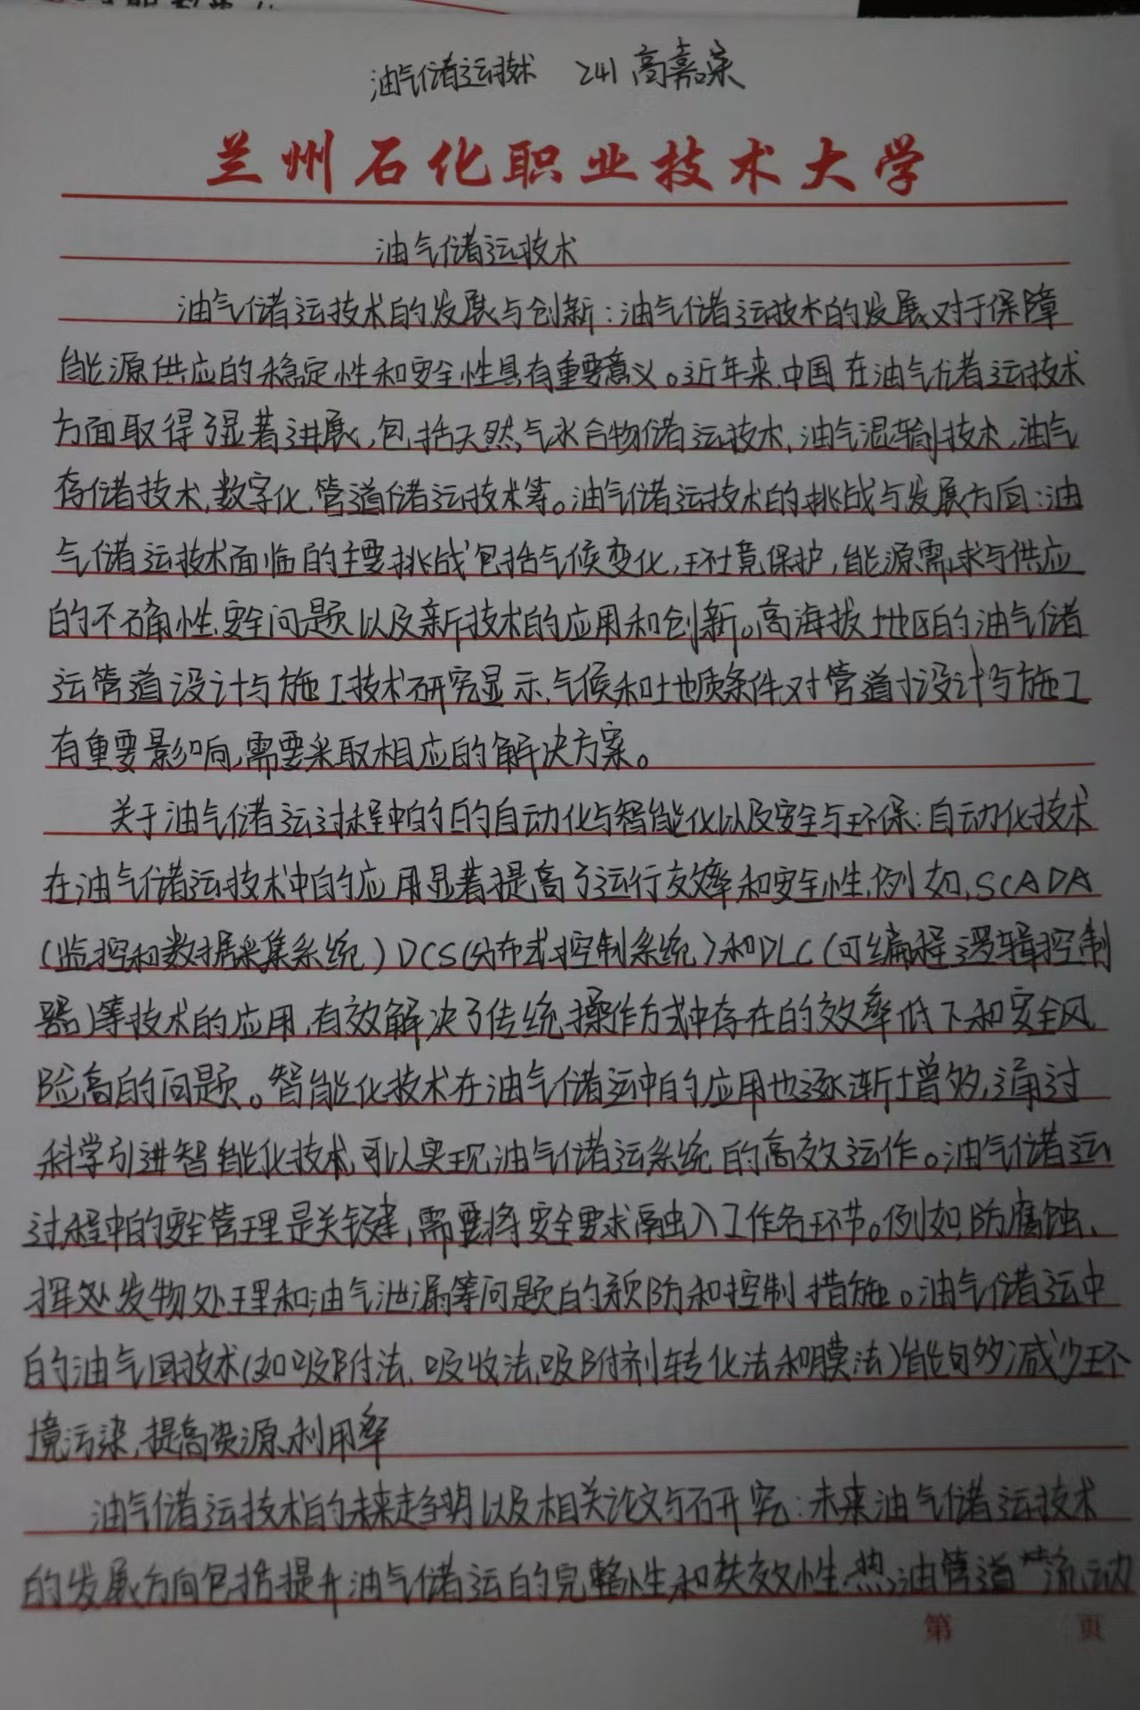 油气储运技术 241 高嘉荣
兰州石化职业技术大学
油气储运技术
油气储运技术的发展与创新:油气储运技术的发展对于保障
能源供应的稳定性和安全性具有重要意义。近年来,中国在油气储运技术
方面取得了显著进展,包括天然气水合物储运技术,油气混输技术,油气
存储技术,数字化管道储运技术等。油气储运技术的挑战与发展方向:油
气储运技术面临的主要挑战包括气候变化,环境保护,能源需求与供应
的不确性,安全问题以及新技术的应用和创新。高海拔地区的油气储
运管道设计与施工技术研究显示,气候和土地质条件对管道设计与施工
有重要影响,需要采取相应的解决方案。
关于油气储运过程中的的自动化与智能化以及安全与环保:自动化技术
在油气储运技术中的应用显著提高了运行效率和安全性,例如,SCADA
(监控和数据采集系统)DCS(分布式控制系统)和DLC(可编程逻辑控制
器)等技术的应用,有效解决了传统操作方式中存在的效率低下和安全风
险高的问题。智能化技术在油气储运中的应用也逐渐增多,通过
科学引进智能化技术,可以实现油气储运系统的高效运作。油气储运
过程中的安全管理是关键,需要将安全要求融入工作各环节。例如,防腐蚀、
挥发物处理和油气泄漏等问题的预防和控制措施。油气储运中
的油气回技术(如吸附法,吸收法,吸附剂转化法和膜法)能够减少环
境污染,提高资源利用率
油气储运技术的未来趋势以及相关论文与研究:未来油气储运技术
的发展方向包括提升油气储运的完整性和失效性,热油管道流动
第 页